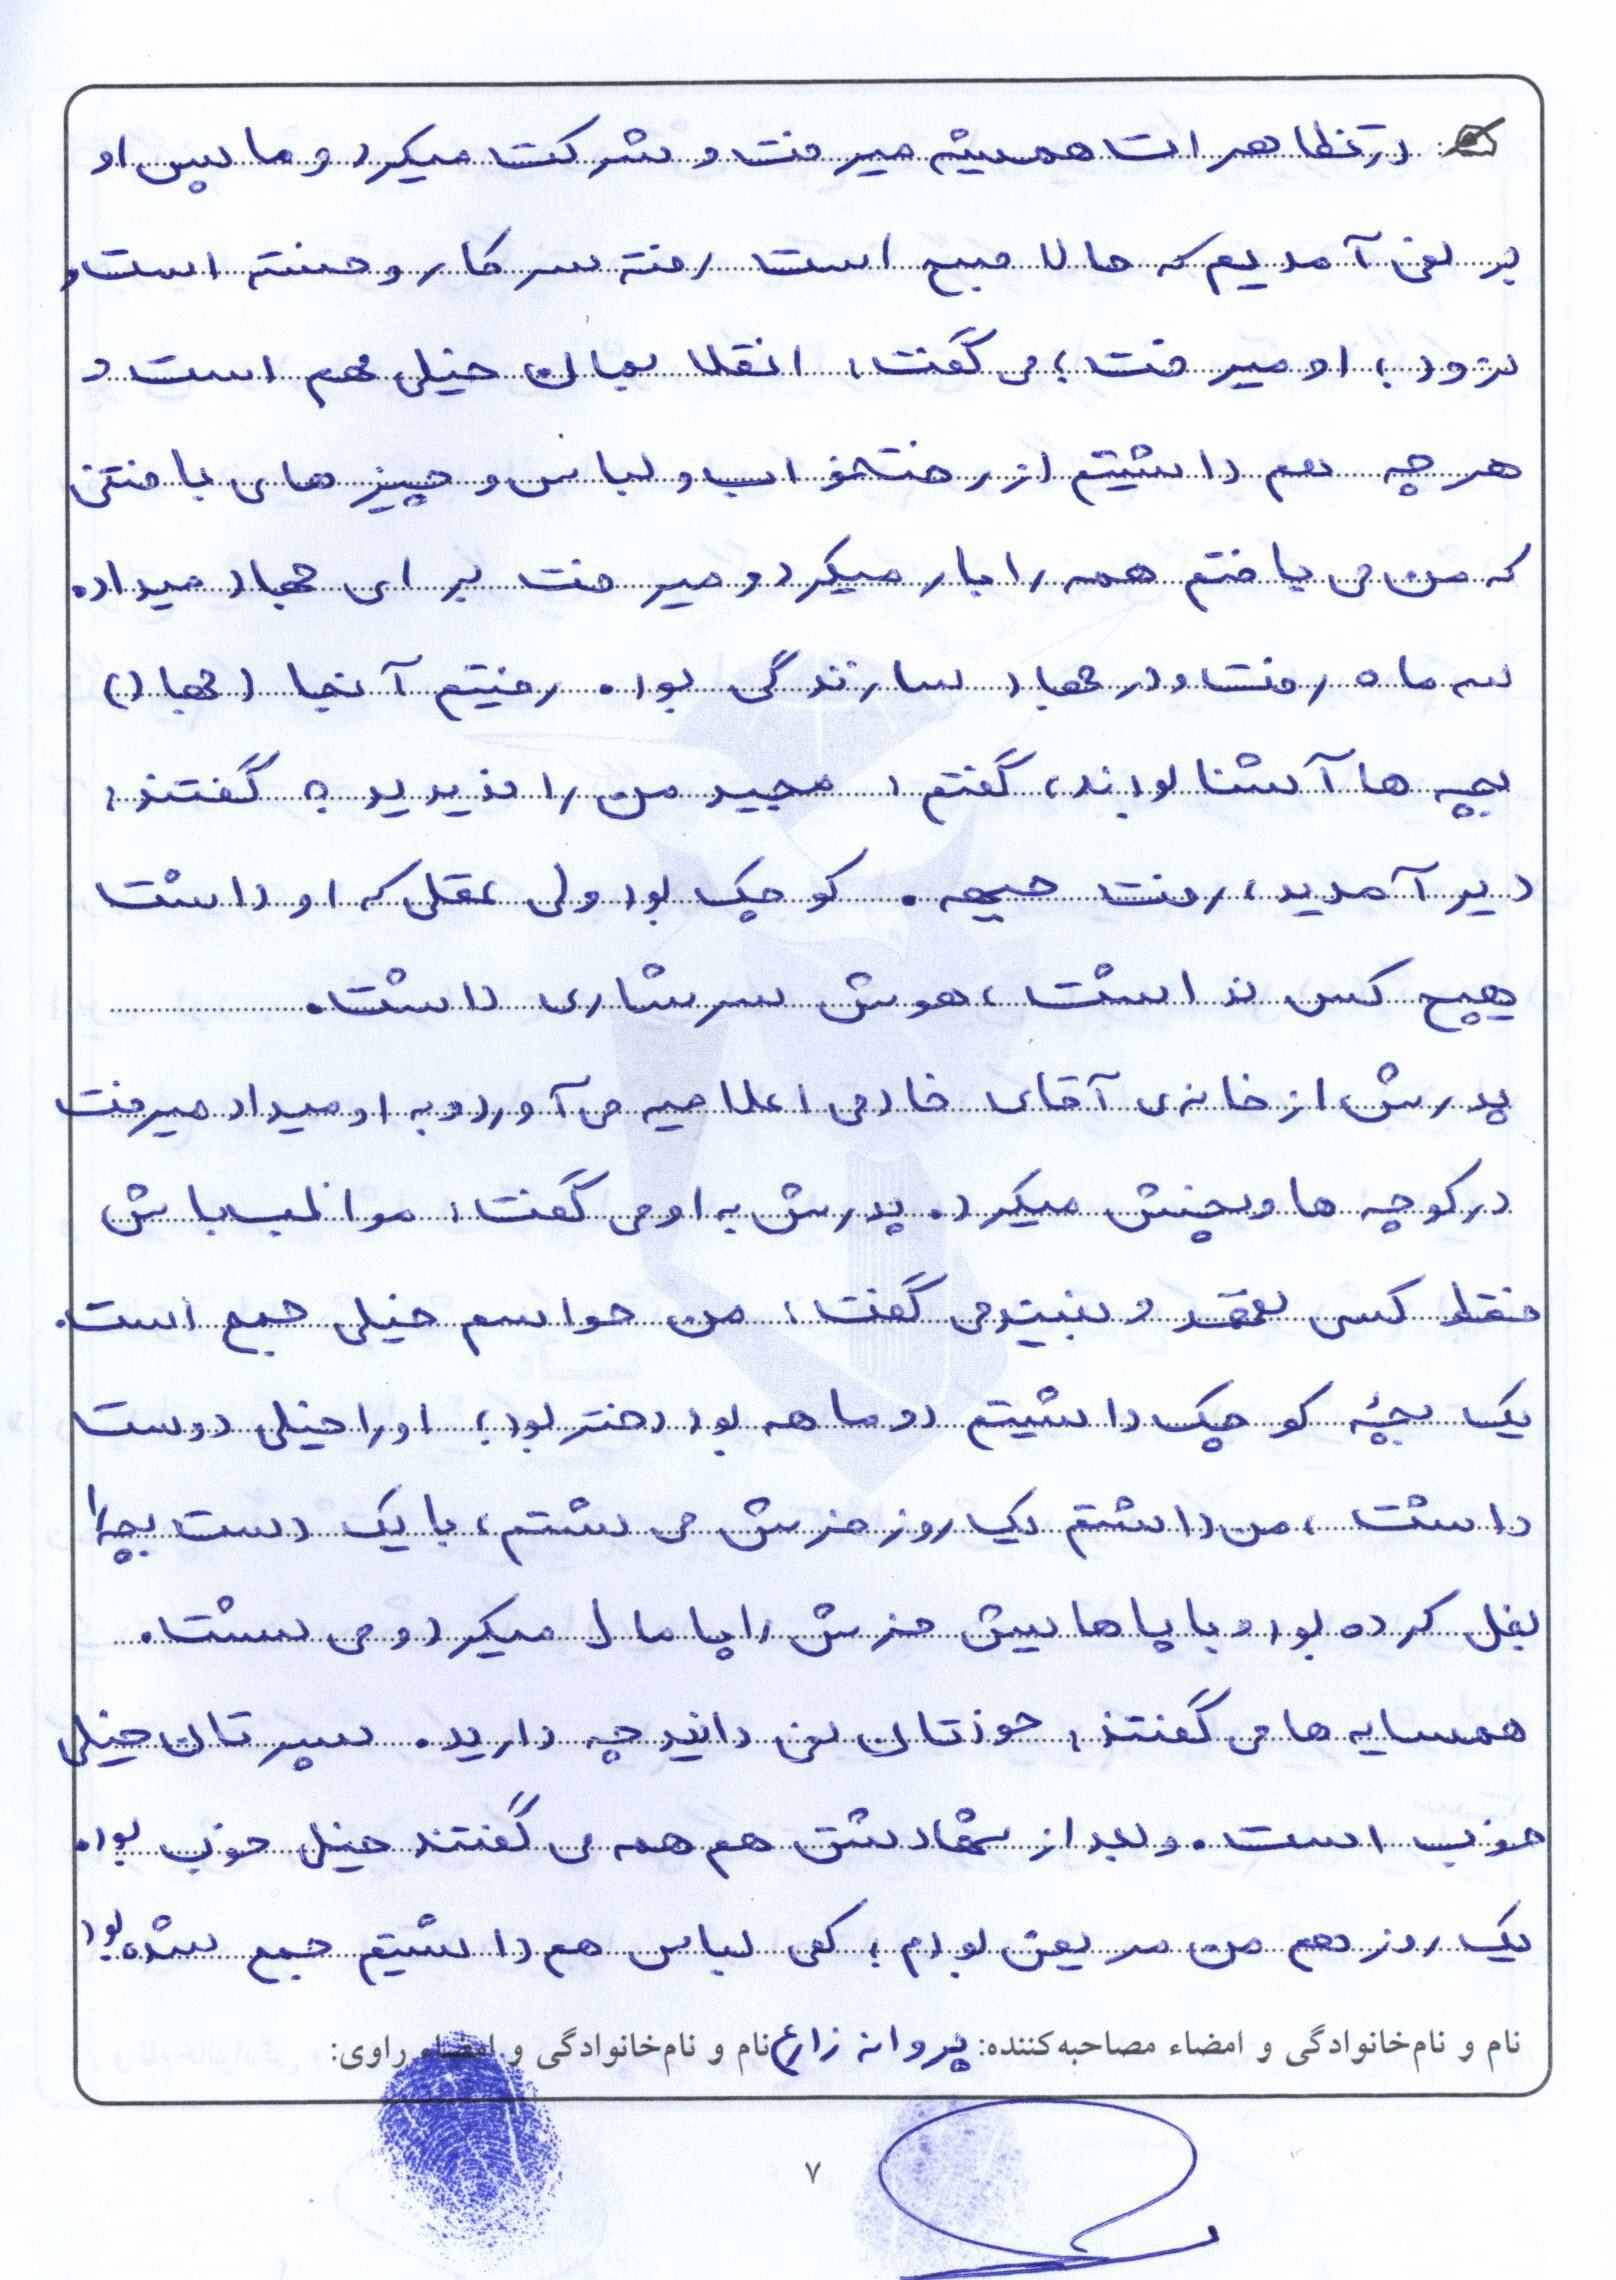 در تظاهرات همیشه میرفت و شرکت میکرد و ما پس او
بر نمی آمدیم که حالا صبح است رفته سر کار و خسته است و
نرود؛ او میرفت؛ می گفت: انقلابمان خیلی مهم است و
هر چه هم داشتیم از رختخواب و لباس و چیزهای بافتنی
که من می بافتم همه را بار میکرد و میرفت برای جهاد میداد.
سه ماه رفت و در جهاد سازندگی بود. رفتیم آنجا (جهاد)
بچه ها آشنا بودند، گفتم: مجید من را ندیدید؟ گفتند:
دیر آمدید، رفت جبهه. کوچک بود ولی عقلی که او داشت
هیچ کس نداشت، هوش سرشاری داشت.
پدرش از خانه ی آقای خادمی اعلامیه می آورد و به او میداد میرفت
در کوچه ها و پخش میکرد. پدرش به او می گفت: مواظب باش
فقط کسی نفهمد و نبیند می گفت: من حواسم خیلی جمع است.
یک بچهٔ کوچک داشتیم دو ماهه بود دختر بود؛ او را خیلی دوست
داشت، من داشتم یک روز فرش می شستم، با یک دست بچه را
بغل کرده بود و با پاهایش فرش را پامال میکرد و می شست.
همسایه ها می گفتند: خودتان نمی دانید چه دارید. پسرتان خیلی
خوب است. و بعد از شهادتش هم همه می گفتند خیلی خوب بود.
یک روز هم من مریض بودم؛ کمی لباس هم داشتیم جمع شده بود
نام و نام‌خانوادگی و امضاء مصاحبه‌کننده: پروانه زارع نام و نام‌خانوادگی و امضاء راوی:
۷